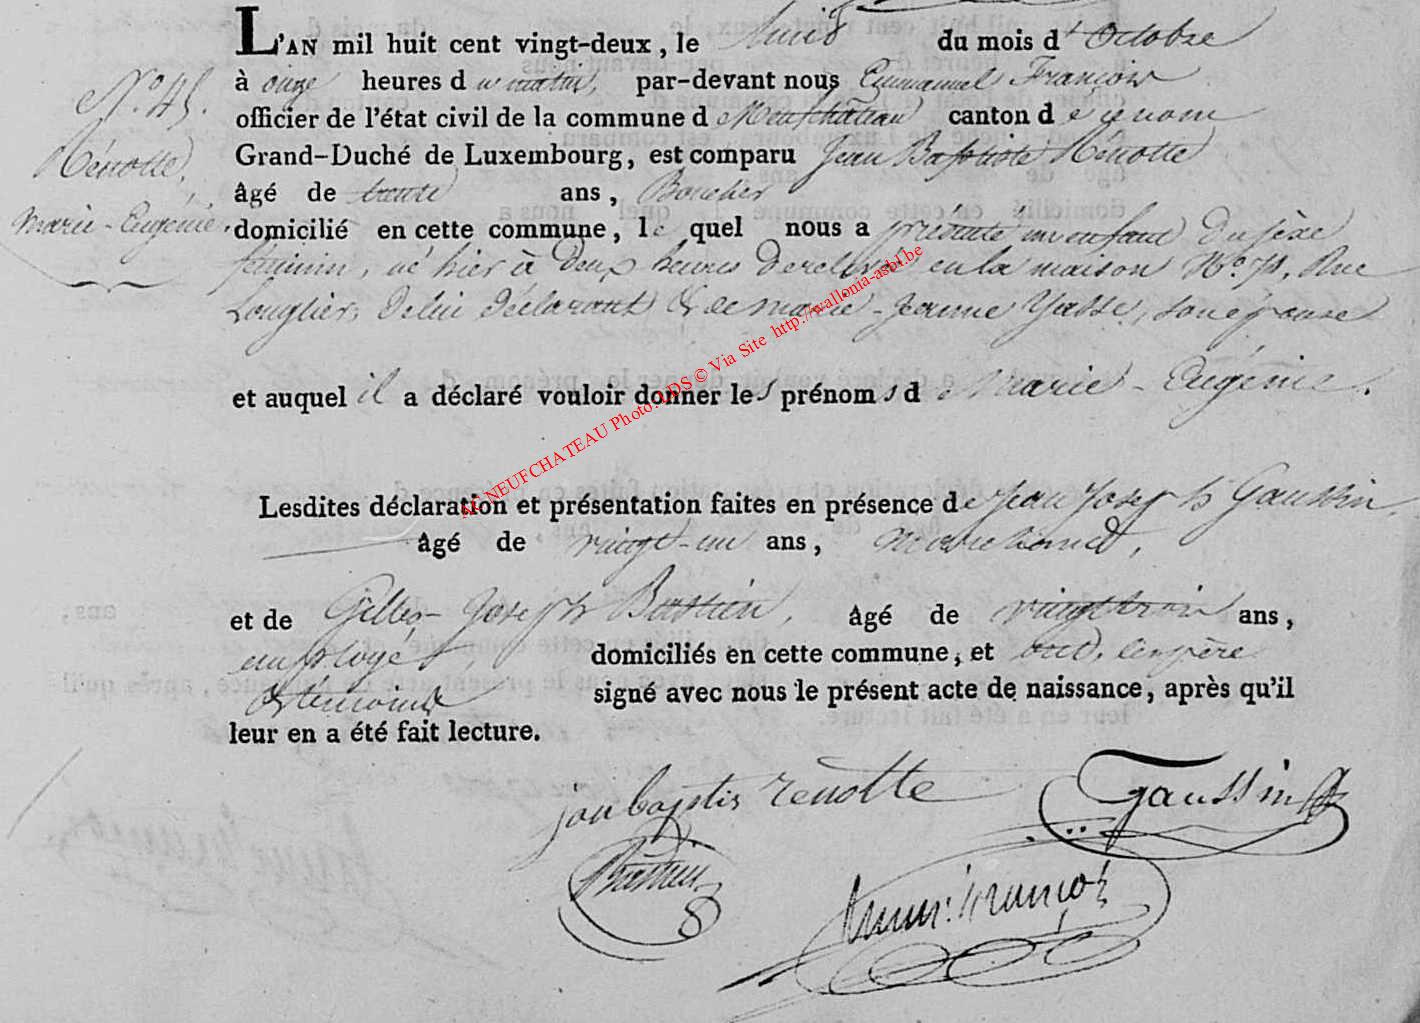 L'AN mil huit cent vingt-deux, le huit du mois d' Octobre
à onze heures du matin, par-devant nous Emmanuel François
officier de l'état civil de la commune de Neufchâteau canton de ce nom
Grand-Duché de Luxembourg, est comparu Jean Baptiste Rénotte
âgé de trente ans, Boucher
domicilié en cette commune, lequel nous a présenté un enfant du sèxe
féminin, né hier à deux heures de relevé, en la maison No. Rue
Longlier, de lui déclarant & de marie-Jeanne Yasse, son épouse
et auquel il a déclaré vouloir donner les prénoms de Marie-Eugénie.
Lesdites déclaration et présentation faites en présence de Jean Joseph Gaussin,
âgé de vingt-un ans, marchand,
et de Gilles-Joseph Bastien, âgé de vingt trois ans,
employé, domiciliés en cette commune, et ont, le père
& témoins signé avec nous le présent acte de naissance, après qu'il
leur en a été fait lecture.
No. 45.
Rénotte,
marie-Eugénie.
jan baptis renotte
Gaussin
Bastien
Emm: françois
AC NEUFCHATEAU Photo: LDS © Via Site http://wallonia-asbl.be